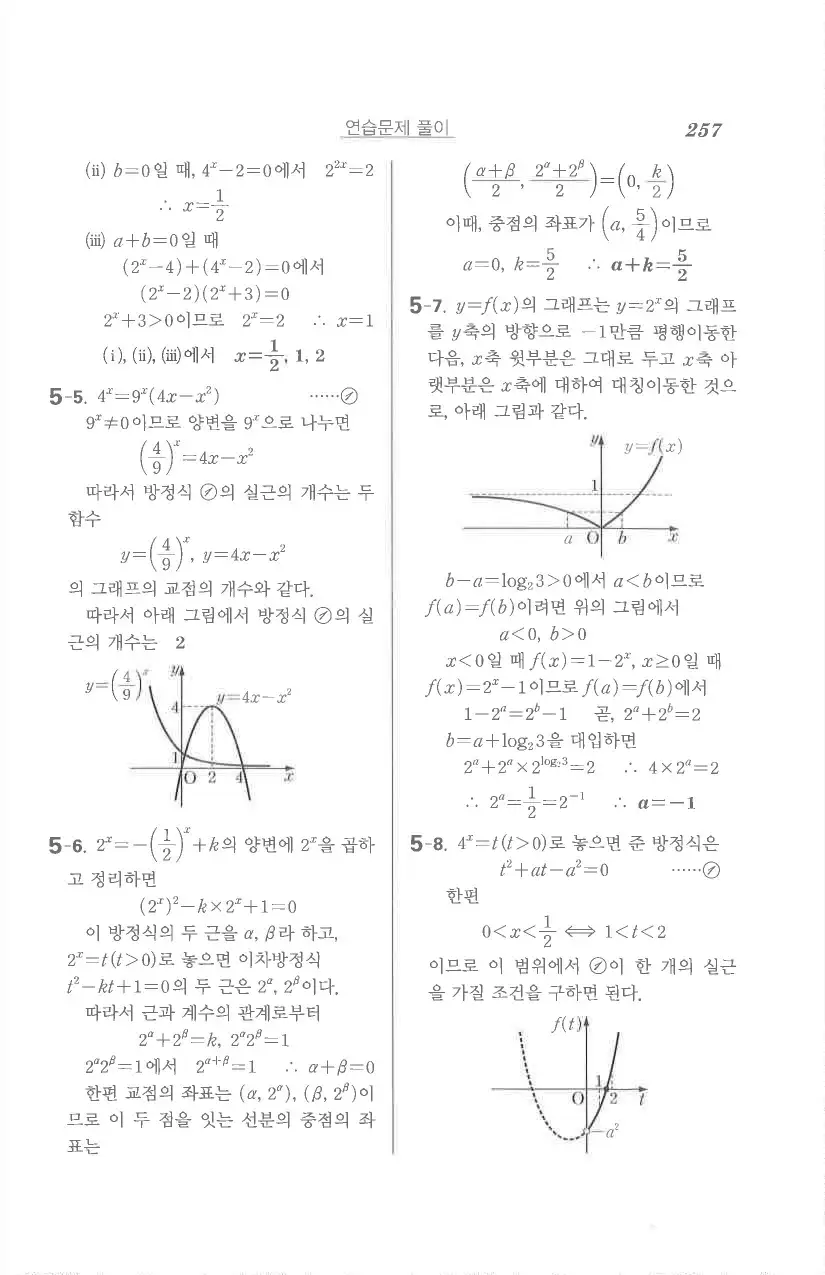 연습문제 풀이
257
(ii) b=0일 때, 4ˣ−2=0에서 2²ˣ=2
∴ x=1/2
(iii) a+b=0일 때
(2ˣ−4)+(4ˣ−2)=0에서
(2ˣ−2)(2ˣ+3)=0
2ˣ+3>0이므로 2ˣ=2 ∴ x=1
(i), (ii), (iii)에서 x=1/2, 1, 2
5-5. 4ˣ=9ˣ(4x−x²) ……㉠
9ˣ≠0이므로 양변을 9ˣ으로 나누면
(4/9)ˣ=4x−x²
따라서 방정식 ㉠의 실근의 개수는 두
함수
y=(4/9)ˣ, y=4x−x²
의 그래프의 교점의 개수와 같다.
따라서 아래 그림에서 방정식 ㉠의 실
근의 개수는 2
y=(4/9)ˣ
y
y=4x−x²
4
1
O 2 4 x
5-6. 2ˣ=−(1/2)ˣ+k의 양변에 2ˣ을 곱하
고 정리하면
(2ˣ)²−k×2ˣ+1=0
이 방정식의 두 근을 α, β라 하고,
2ˣ=t(t>0)로 놓으면 이차방정식
t²−kt+1=0의 두 근은 2^α, 2^β이다.
따라서 근과 계수의 관계로부터
2^α+2^β=k, 2^α2^β=1
2^α2^β=1에서 2^(α+β)=1 ∴ α+β=0
한편 교점의 좌표는 (α, 2^α), (β, 2^β)이
므로 이 두 점을 잇는 선분의 중점의 좌
표는
((α+β)/2, (2^α+2^β)/2)=(0, k/2)
이때, 중점의 좌표가 (a, 5/4)이므로
a=0, k=5/2 ∴ a+k=5/2
5-7. y=f(x)의 그래프는 y=2ˣ의 그래프
를 y축의 방향으로 −1만큼 평행이동한
다음, x축 윗부분은 그대로 두고 x축 아
랫부분은 x축에 대하여 대칭이동한 것으
로, 아래 그림과 같다.
y
y=f(x)
1
a O b x
b−a=log₂3>0에서 a<b이므로
f(a)=f(b)이려면 위의 그림에서
a<0, b>0
x<0일 때 f(x)=1−2ˣ, x≥0일 때
f(x)=2ˣ−1이므로 f(a)=f(b)에서
1−2^a=2^b−1 곧, 2^a+2^b=2
b=a+log₂3을 대입하면
2^a+2^a×2^(log₂3)=2 ∴ 4×2^a=2
∴ 2^a=1/2=2⁻¹ ∴ a=−1
5-8. 4ˣ=t(t>0)로 놓으면 준 방정식은
t²+at−a²=0 ……㉠
한편
0<x<1/2 ⟺ 1<t<2
이므로 이 범위에서 ㉠이 한 개의 실근
을 가질 조건을 구하면 된다.
f(t)
1
O 2 t
−a²